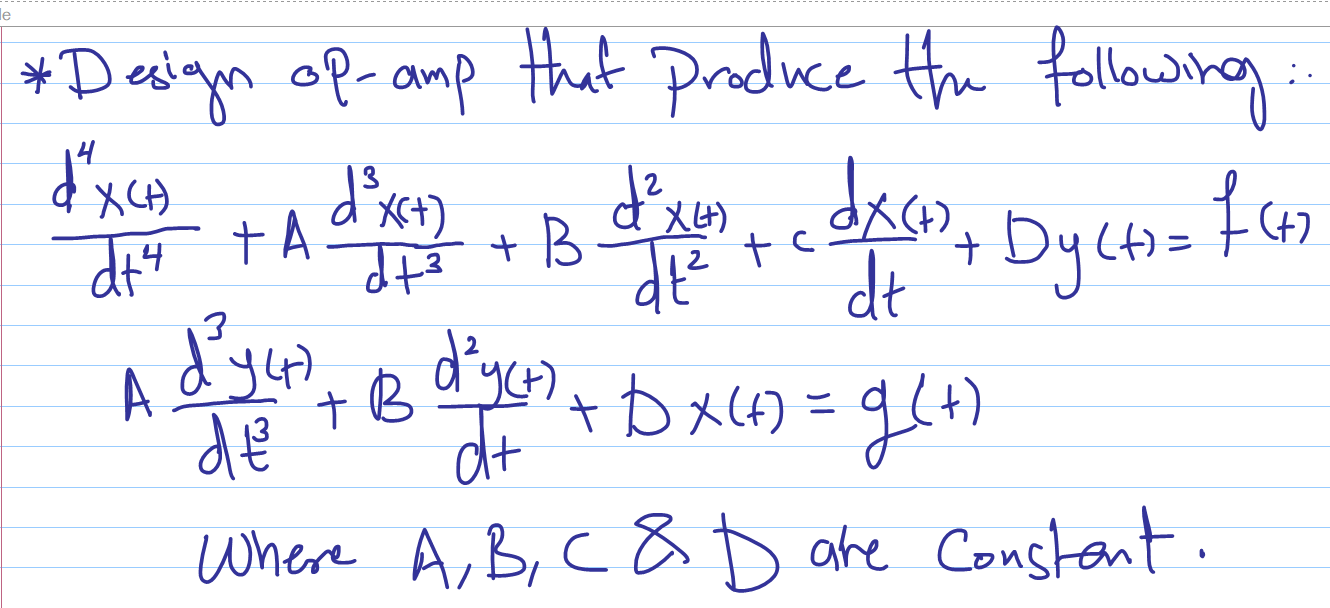 le
*Design op-amp that produce the following:.
d⁴x(t)/dt⁴ + A d³x(t)/dt³ + B d²x(t)/dt² + c dx(t)/dt + Dy(t) = f(t)
A d³y(t)/dt³ + B d²y(t)/dt + D x(t) = g(t)
Where A, B, C & D are constant.